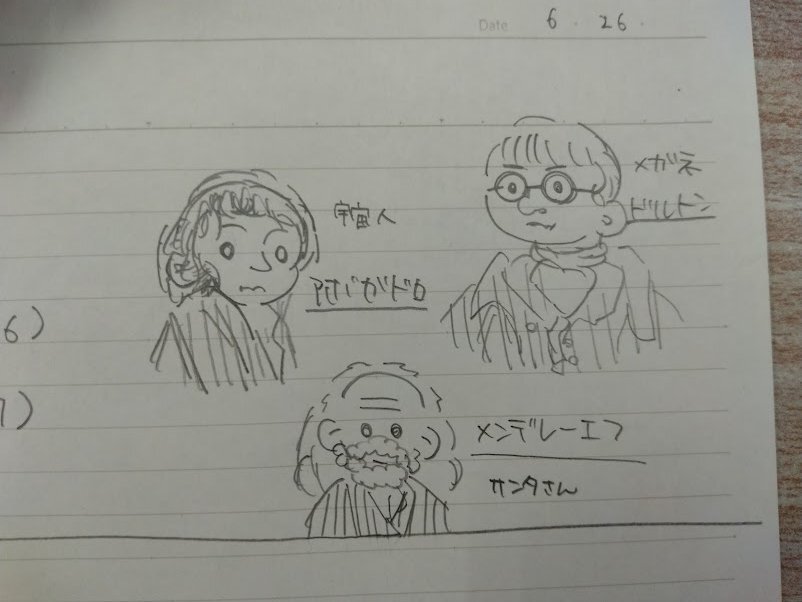 Date 6・26・
メガネ
ドルトン
宇宙人
アボガドロ
6)
7)
メンデレーエフ
サンタさん